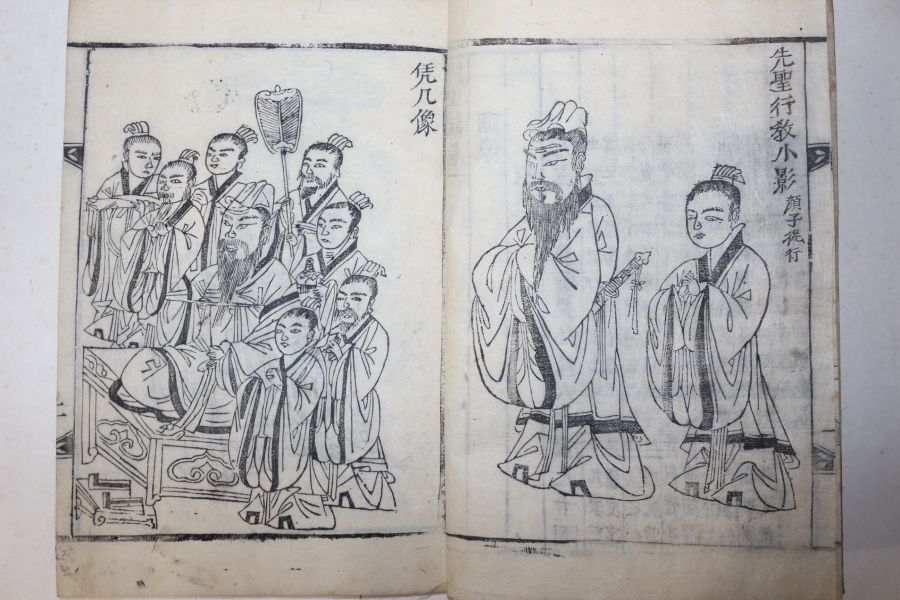 先聖行教小影
顔子從行
凭几像